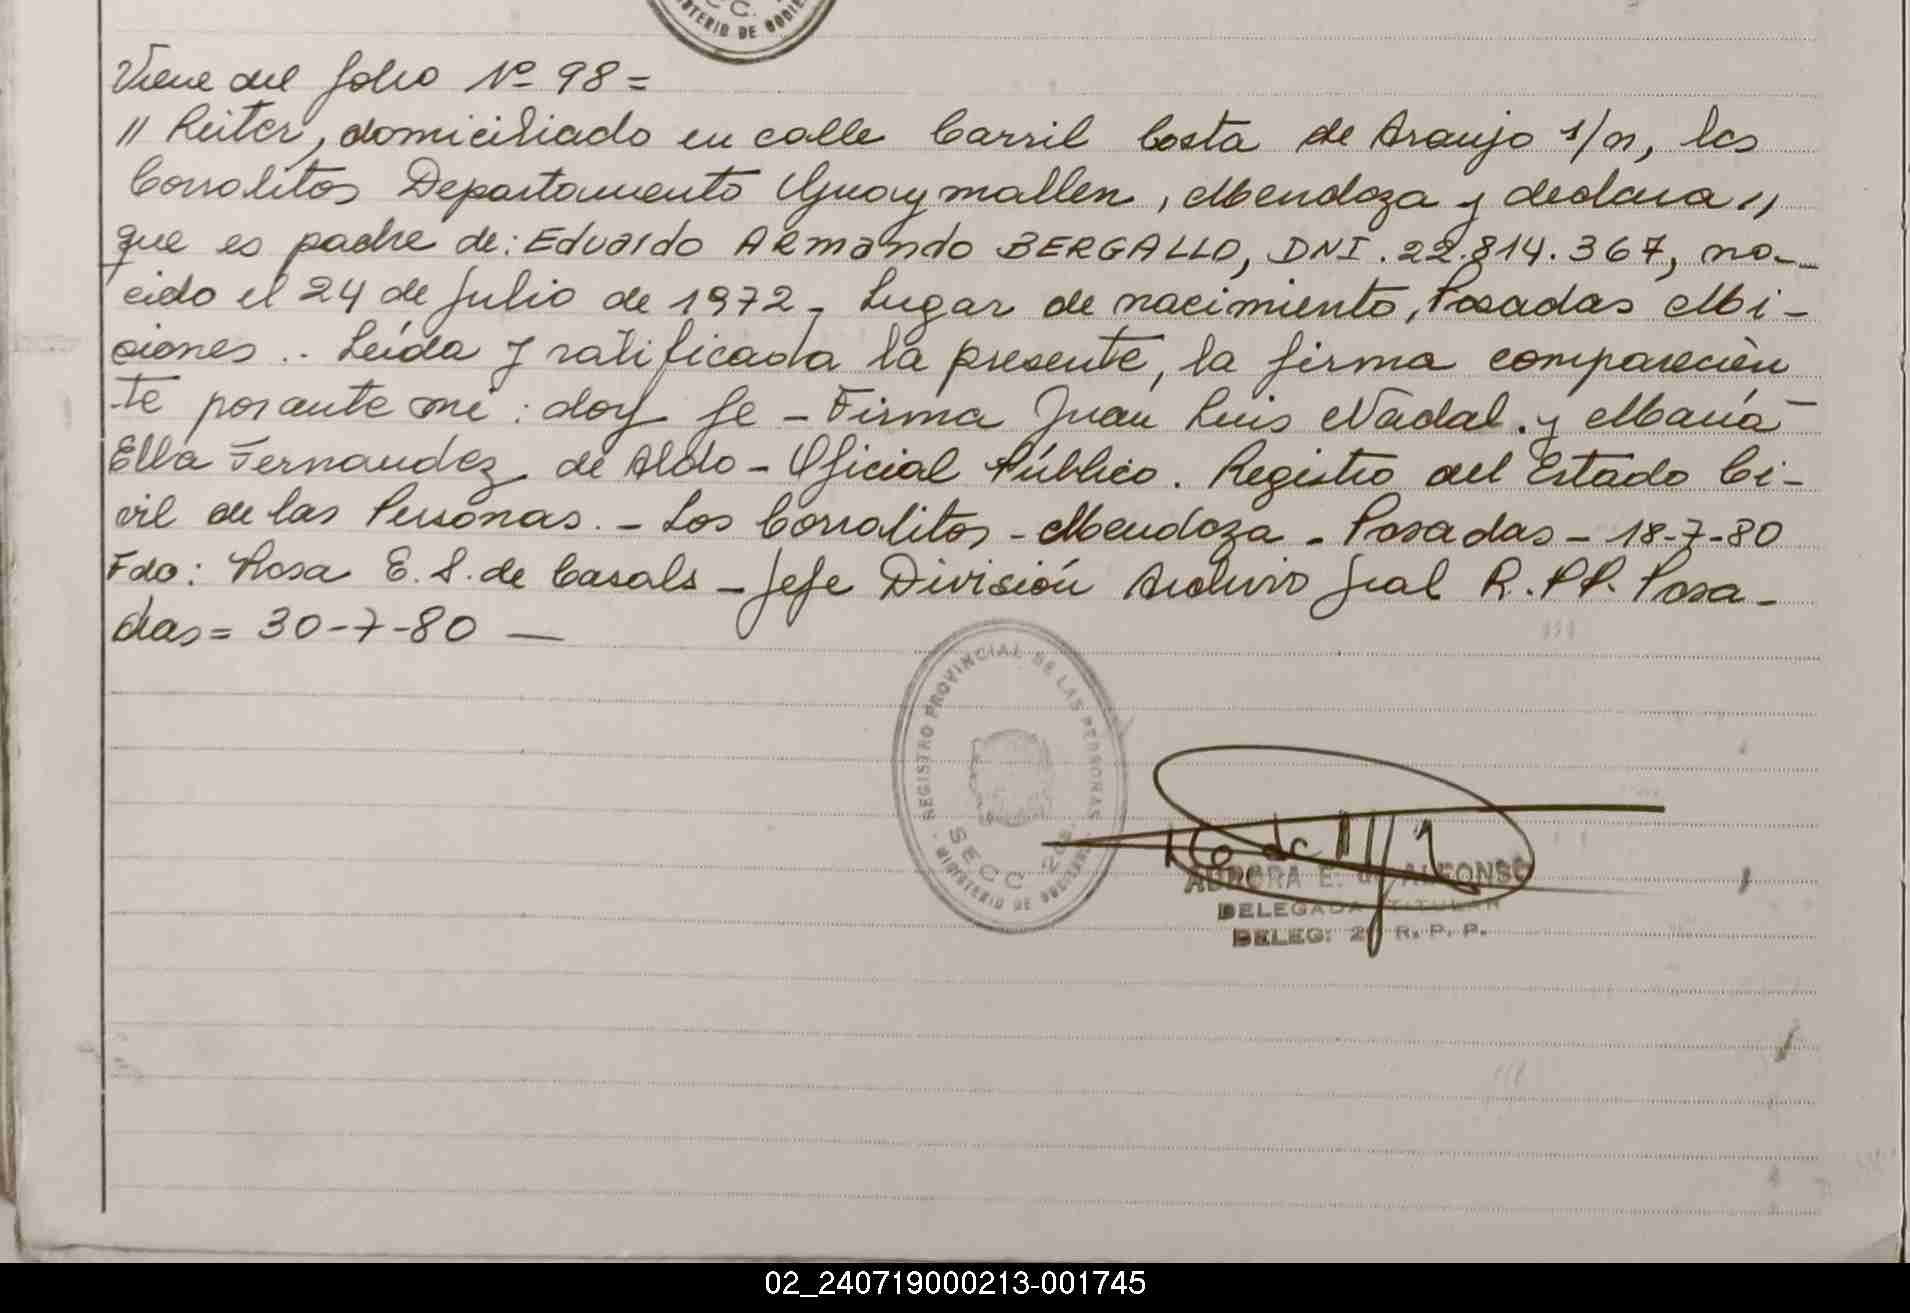 MINISTERIO DE GOBIE
Viene del folio Nº 98=
// Reiter, domiciliado en calle Carril Costa de Araujo s/n, los
Corralitos Departamento Guaymallen, Mendoza y declara //
que es padre de: Eduardo ARmando BERGALLO, DNI. 22.814.367, na-
cido el 24 de Julio de 1972- Lugar de nacimiento, Posadas Mi-
siones.. Leída y ratificada la presente, la firma comparecien
te por ante mí: doy fe - Firma Juan Luis Nadal. y María
Ella Fernandez de Aldo - Oficial Público. Registro del Estado Ci-
vil de las Personas. - Los Corralitos - Mendoza - Posadas - 18-7-80
Fdo: Rosa E. S. de Casals - Jefe División Archivo Gral R.PP. Posa-
das= 30-7-80 —
REGISTRO PROVINCIAL DE LAS PERSONAS
SECC.
MINISTERIO DE GOBIERNO
AURORA E. de ALFONSO
DELEGADA TITULAR
DELEG: R. P. P.
02_240719000213-001745